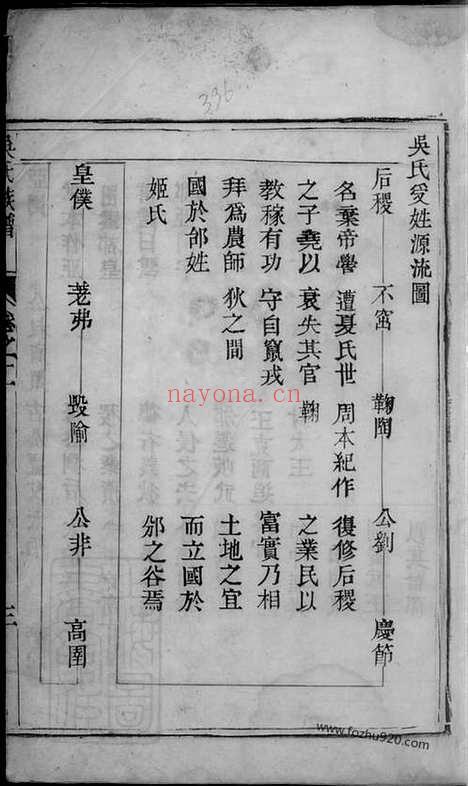 336
吳氏受姓源流圖
后稷 不窋 鞠陶 公劉 慶節
名棄帝嚳 遭夏氏世 周本紀作 復修后稷
之子堯以 衰失其官 鞠 之業民以
教稼有功 守自竄戎 富實乃相
拜爲農師 狄之間 土地之宜
國於邰姓 而立國於
姬氏 邠之谷焉
皇僕 差弗 毀隃 公非 高圉
吳氏族譜 卷之 三
nayona.cn
www.fozhu920.com